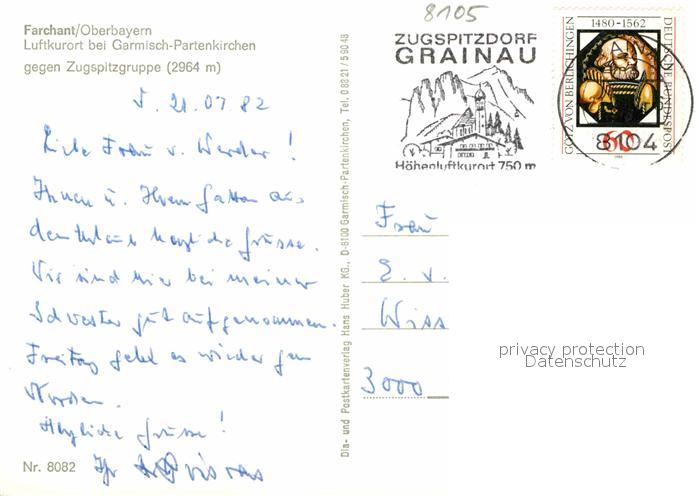 8105
Farchant/Oberbayern
Luftkurort bei Garmisch-Partenkirchen
gegen Zugspitzgruppe (2964 m)
ZUGSPITZDORF
GRAINAU
Höhenluftkurort 750 m
1480-1562
GÖTZ VON BERLICHINGEN
DEUTSCHE BUNDESPOST
60
8104
21.07.82
Liebe Frau v. Werder!
Ihnen u. Ihrem Gatten aus
dem Urlaub herzliche Grüsse.
Wir sind hier bei meiner
Schwester gut aufgenommen.
Freitag geht es wieder gen
Norden.
Herzliche Grüsse!
Ihr
Frau
E. v.
Wiss
3000
privacy protection
Datenschutz
Dia- und Postkartenverlag Hans Huber KG., D-8100 Garmisch-Partenkirchen, Tel. 08821/59048
Nr. 8082